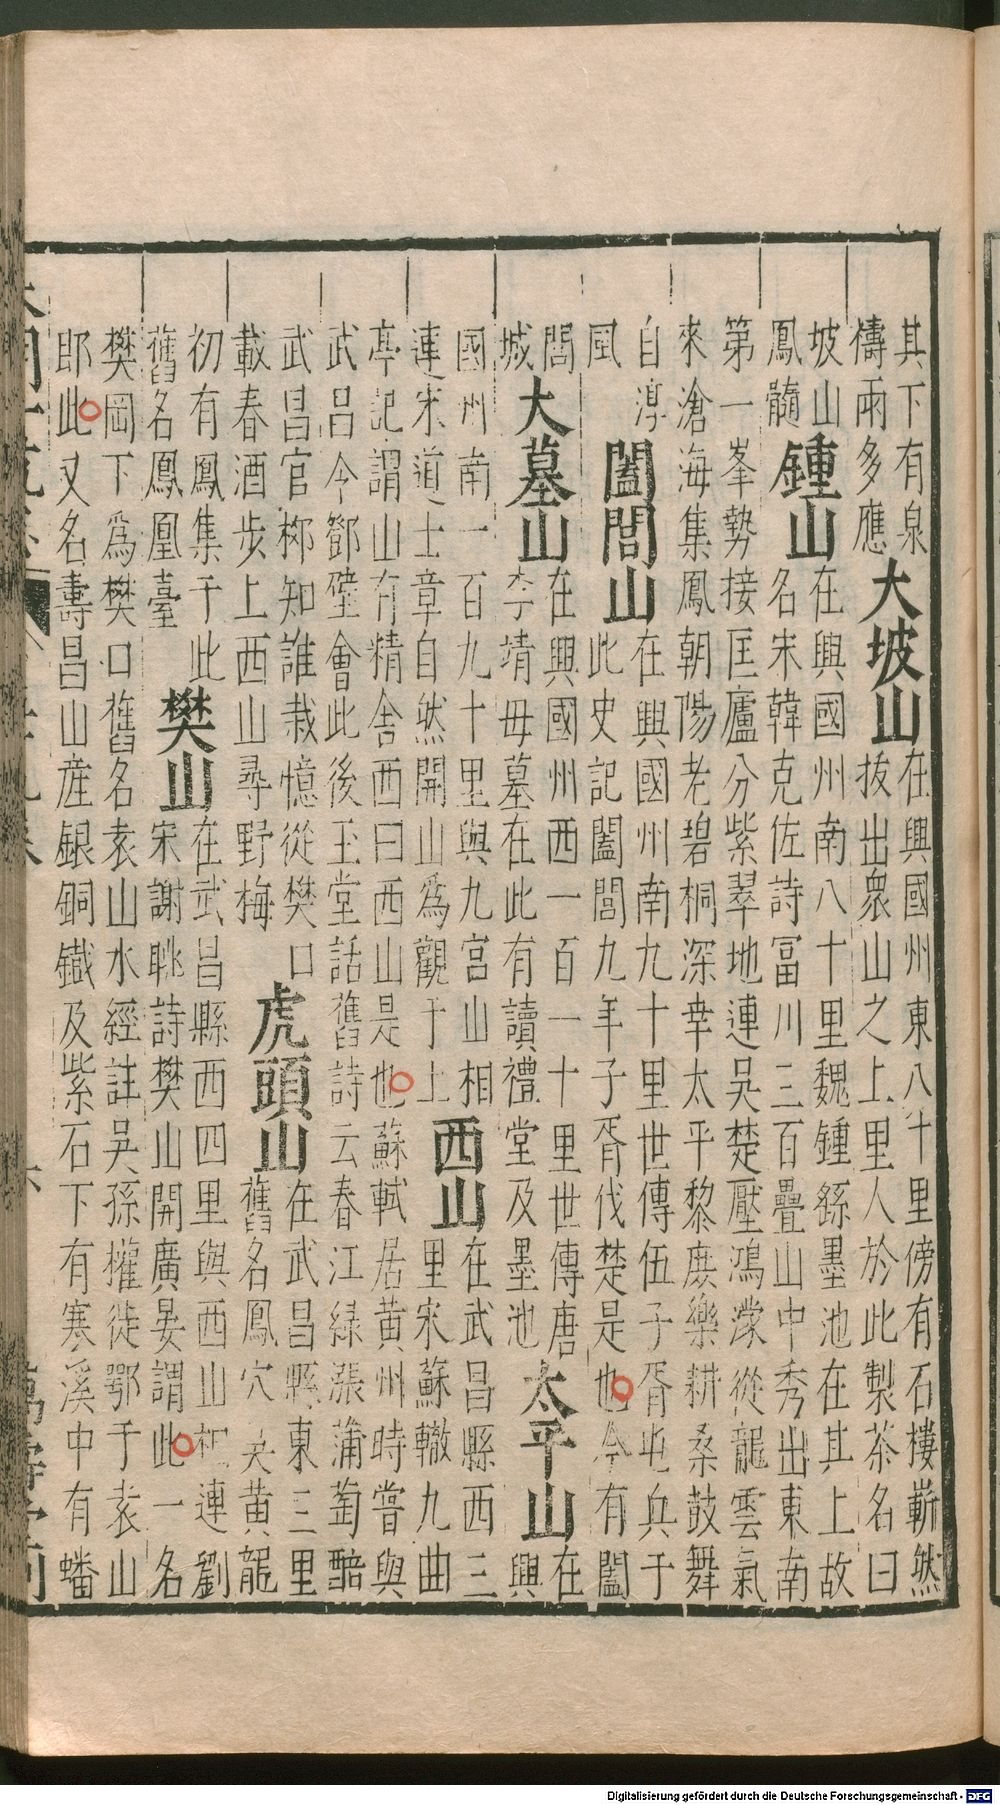 其下有泉
禱雨多應
大坡山
在興國州東八十里傍有石樓嶄然
拔出衆山之上里人於此製茶名曰
坡山
鳳髓
鍾山
在興國州南八十里魏鍾繇墨池在其上故
名宋韓克佐詩富川三百疊山中秀出東南
第一峯勢接匡廬分紫翠地連吳楚壓鴻濛從龍雲氣
來滄海集鳳朝陽老碧桐深幸太平黎庶樂耕桑鼓舞
自淳
風
闔閭山
在興國州南九十里世傳伍子胥屯兵于
此史記闔閭九年子胥伐楚是也今有闔
閭
城
大墓山
在興國州西一百一十里世傳唐
李靖母墓在此有讀禮堂及墨池
太平山
在
興
國州南一百九十里與九宮山相
連宋道士章自然開山爲觀于上
西山
在武昌縣西三
里宋蘇轍九曲
亭記謂山有精舍西曰西山是也蘇軾居黃州時嘗與
武昌令鄧璧會此後玉堂話舊詩云春江綠漲蒲萄醅
武昌官柳知誰栽憶從樊口
載春酒步上西山尋野梅
虎頭山
在武昌縣東三里
舊名鳳穴吳黃龍
初有鳳集于此
舊名鳳凰臺
樊山
在武昌縣西四里與西山相連劉
宋謝眺詩樊山開廣宴謂此一名
樊岡下爲樊口舊名袁山水經註吳孫權徙鄂于袁山
即此又名壽昌山產銀銅鐵及紫石下有寒溪中有蟠
Digitalisierung gefördert durch die Deutsche Forschungsgemeinschaft - DFG